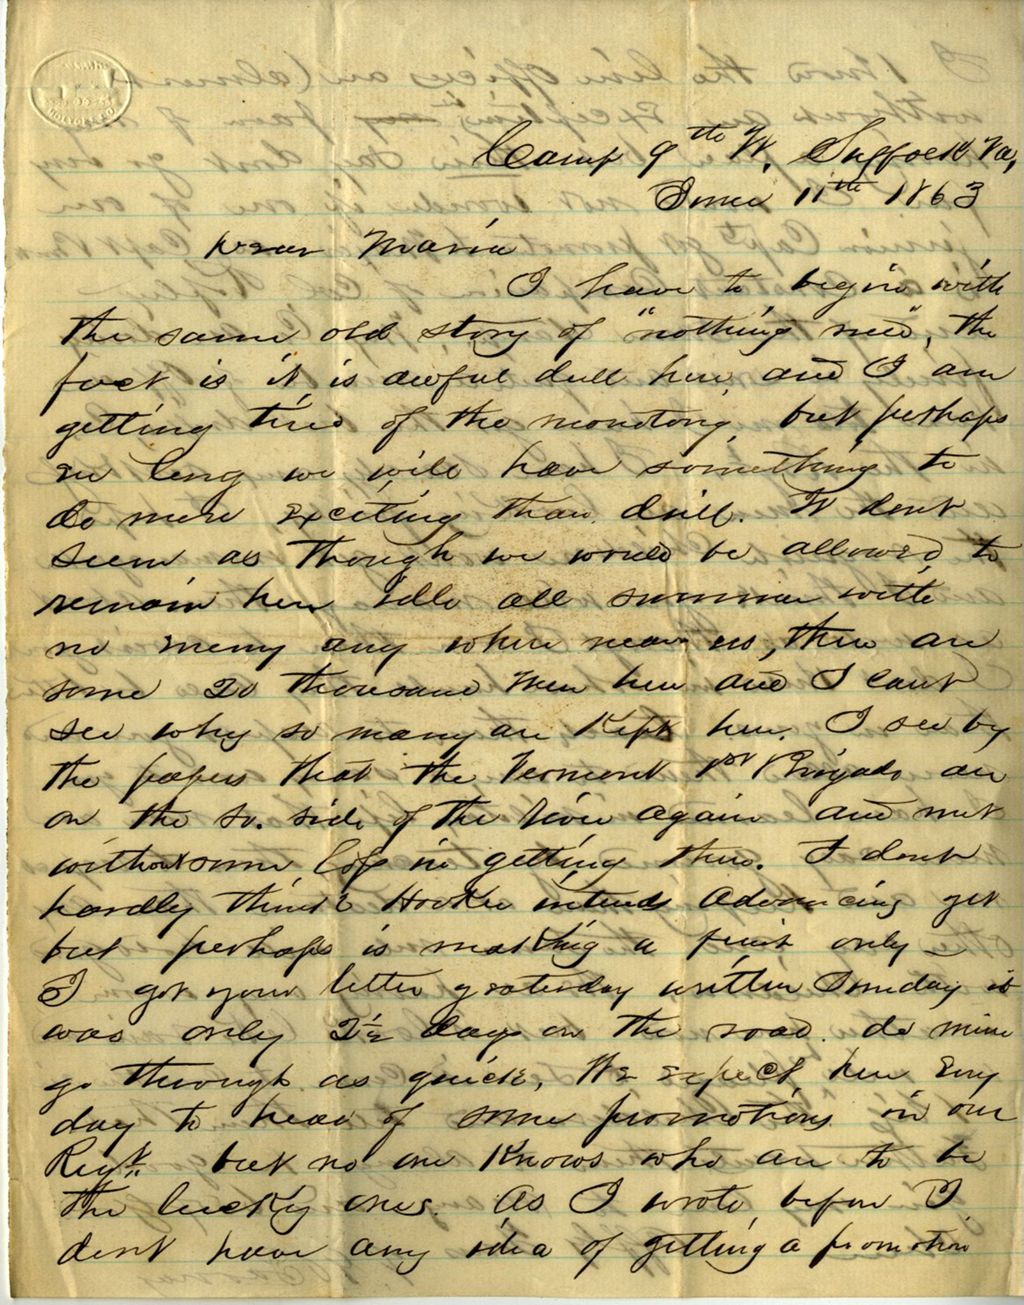 Camp 9th Vt, Suffolk Va,
June 11th 1863
Dear Maria
I have to begin with
the same old story of "nothing new", the
fact is it is awful dull here, and I am
getting tired of the monotony, but perhaps
ere long we will have something to
do more exciting than drill. It dont
seem as though we would be allowed to
remain here idle all summer with
no enemy any where near us, there are
some 20 thousand men here and I cant
see why so many are kept here. I see by
the papers that the Vermont 1st Brigade are
on the So. side of the river again and not
without some loss in getting there. I dont
hardly think Hooker intends advancing yet
but perhaps is making a feint only
I got your letter yesterday written Sunday it
was only 2½ days on the road. do mine
go through as quick, We expect here every
day to hear of some promotions in our
Regt. but no one knows who are to be
the lucky ones. As I wrote before I
dont have any idea of getting a promotion